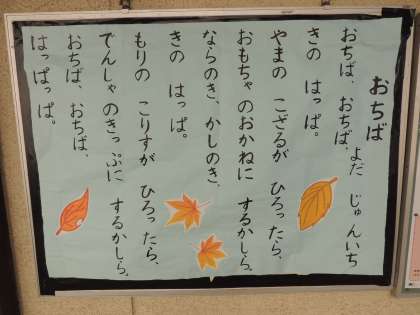 おちば
よだ じゅんいち
おちば、おちば、
きの はっぱ。
やまの こざるが ひろったら、
おもちゃのおかねに するかしら。
ならのき、かしのき、
きの はっぱ。
もりの こりすが ひろったら、
でんしゃのきっぷに するかしら。
おちば、おちば、
はっぱっぱ。